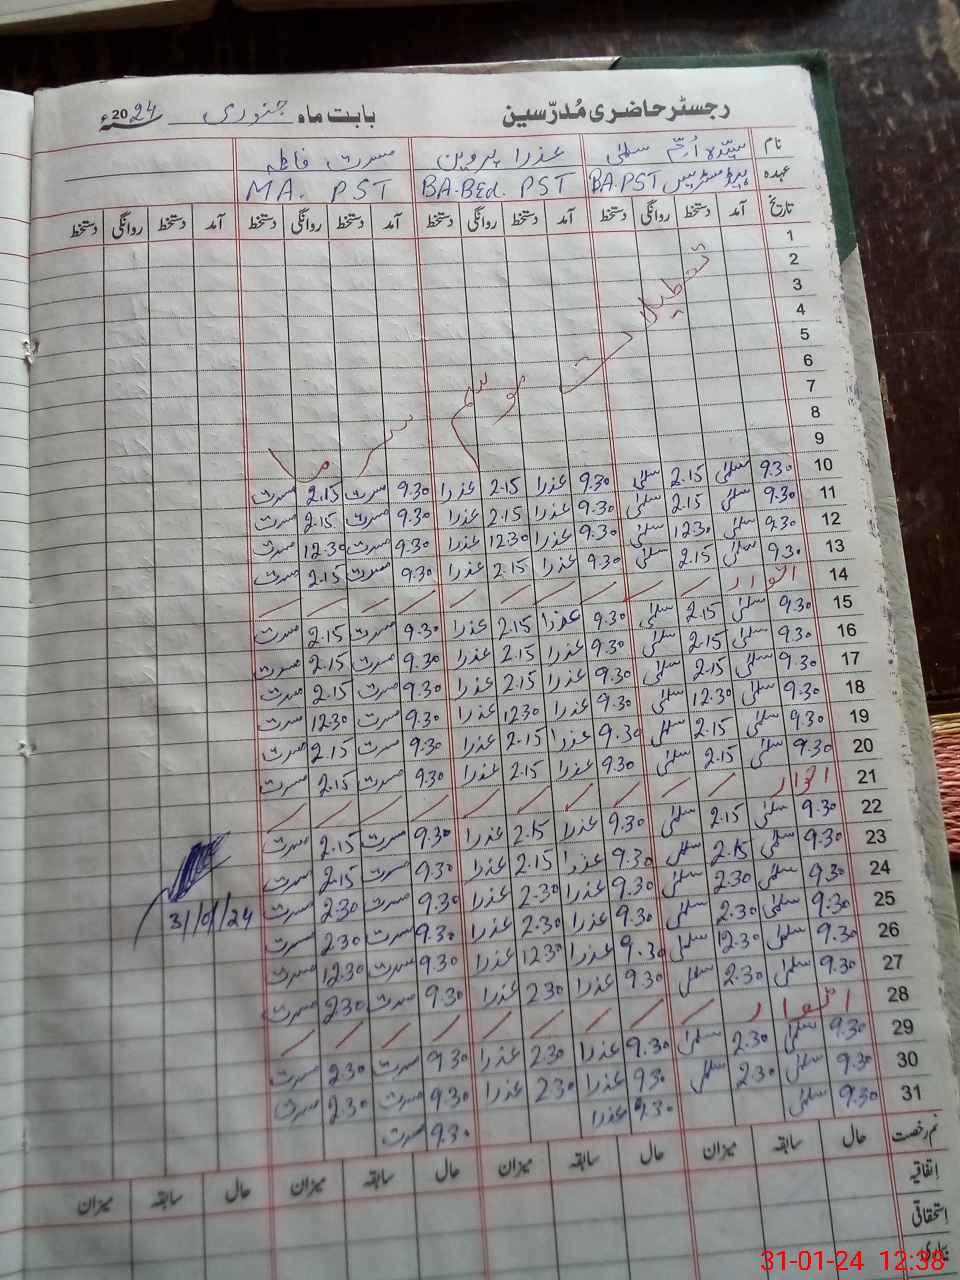 رجسٹر حاضری مُدرّسین بابت ماہ جنوری 2024ء
نام سیدہ اُمِّ سلمیٰ عذرا پروین مسرت فاطمہ
عہدہ ہیڈ مسٹریس BA.PST BA.BEd. PST MA. PST
تاریخ آمد دستخط روانگی دستخط آمد دستخط روانگی دستخط آمد دستخط روانگی دستخط آمد دستخط روانگی دستخط
1
2
3
4
5
6
7
8
9
تعطیلات موسم سرما
10 9.30 سلمیٰ 2.15 سلمیٰ 9.30 عذرا 2.15 عذرا 9.30 مسرت 2.15 مسرت
11 9.30 سلمیٰ 2.15 سلمیٰ 9.30 عذرا 2.15 عذرا 9.30 مسرت 2.15 مسرت
12 9.30 سلمیٰ 12.30 سلمیٰ 9.30 عذرا 12.30 عذرا 9.30 مسرت 12.30 مسرت
13 9.30 سلمیٰ 2.15 سلمیٰ 9.30 عذرا 2.15 عذرا 9.30 مسرت 2.15 مسرت
14 اتوار
15 9.30 سلمیٰ 2.15 سلمیٰ 9.30 عذرا 2.15 عذرا 9.30 مسرت 2.15 مسرت
16 9.30 سلمیٰ 2.15 سلمیٰ 9.30 عذرا 2.15 عذرا 9.30 مسرت 2.15 مسرت
17 9.30 سلمیٰ 2.15 سلمیٰ 9.30 عذرا 2.15 عذرا 9.30 مسرت 2.15 مسرت
18 9.30 سلمیٰ 12.30 سلمیٰ 9.30 عذرا 12.30 عذرا 9.30 مسرت 12.30 مسرت
19 9.30 سلمیٰ 2.15 سلمیٰ 9.30 عذرا 2.15 عذرا 9.30 مسرت 2.15 مسرت
20 9.30 سلمیٰ 2.15 سلمیٰ 9.30 عذرا 2.15 عذرا 9.30 مسرت 2.15 مسرت
21 اتوار
22 9.30 سلمیٰ 2.15 سلمیٰ 9.30 عذرا 2.15 عذرا 9.30 مسرت 2.15 مسرت
23 9.30 سلمیٰ 2.15 سلمیٰ 9.30 عذرا 2.15 عذرا 9.30 مسرت 2.15 مسرت
24 9.30 سلمیٰ 2.30 سلمیٰ 9.30 عذرا 2.30 عذرا 9.30 مسرت 2.30 مسرت
25 9.30 سلمیٰ 2.30 سلمیٰ 9.30 عذرا 2.30 عذرا 9.30 مسرت 2.30 مسرت
26 9.30 سلمیٰ 12.30 سلمیٰ 9.30 عذرا 12.30 عذرا 9.30 مسرت 12.30 مسرت
27 9.30 سلمیٰ 2.30 سلمیٰ 9.30 عذرا 2.30 عذرا 9.30 مسرت 2.30 مسرت
28 اتوار
29 9.30 سلمیٰ 2.30 سلمیٰ 9.30 عذرا 2.30 عذرا 9.30 مسرت 2.30 مسرت
30 9.30 سلمیٰ 2.30 سلمیٰ 9.30 عذرا 2.30 عذرا 9.30 مسرت 2.30 مسرت
31 9.30 سلمیٰ 9.30 عذرا 9.30 مسرت
31/01/24
نمبر رخصت حال سابقہ میزان حال سابقہ میزان حال سابقہ میزان حال سابقہ میزان
اتفاقیہ
استحقاقی
بیماری
31-01-24 12:38